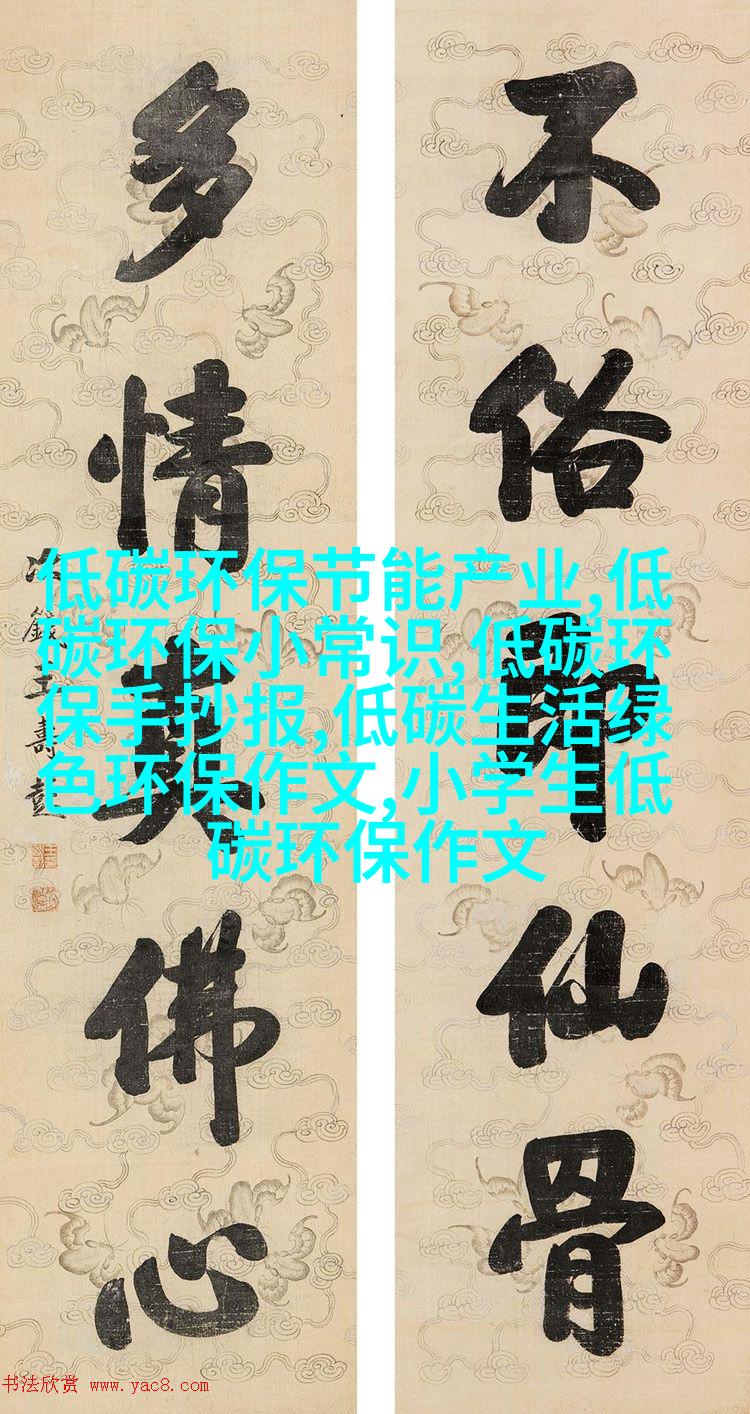 不俗即仙骨
多情
佛心
王壽彭
低碳环保节能产业,低
碳环保小常识,低碳环
保手抄报,低碳生活绿
色环保作文,小学生低
碳环保作文
书法欣赏 www.yac8.com